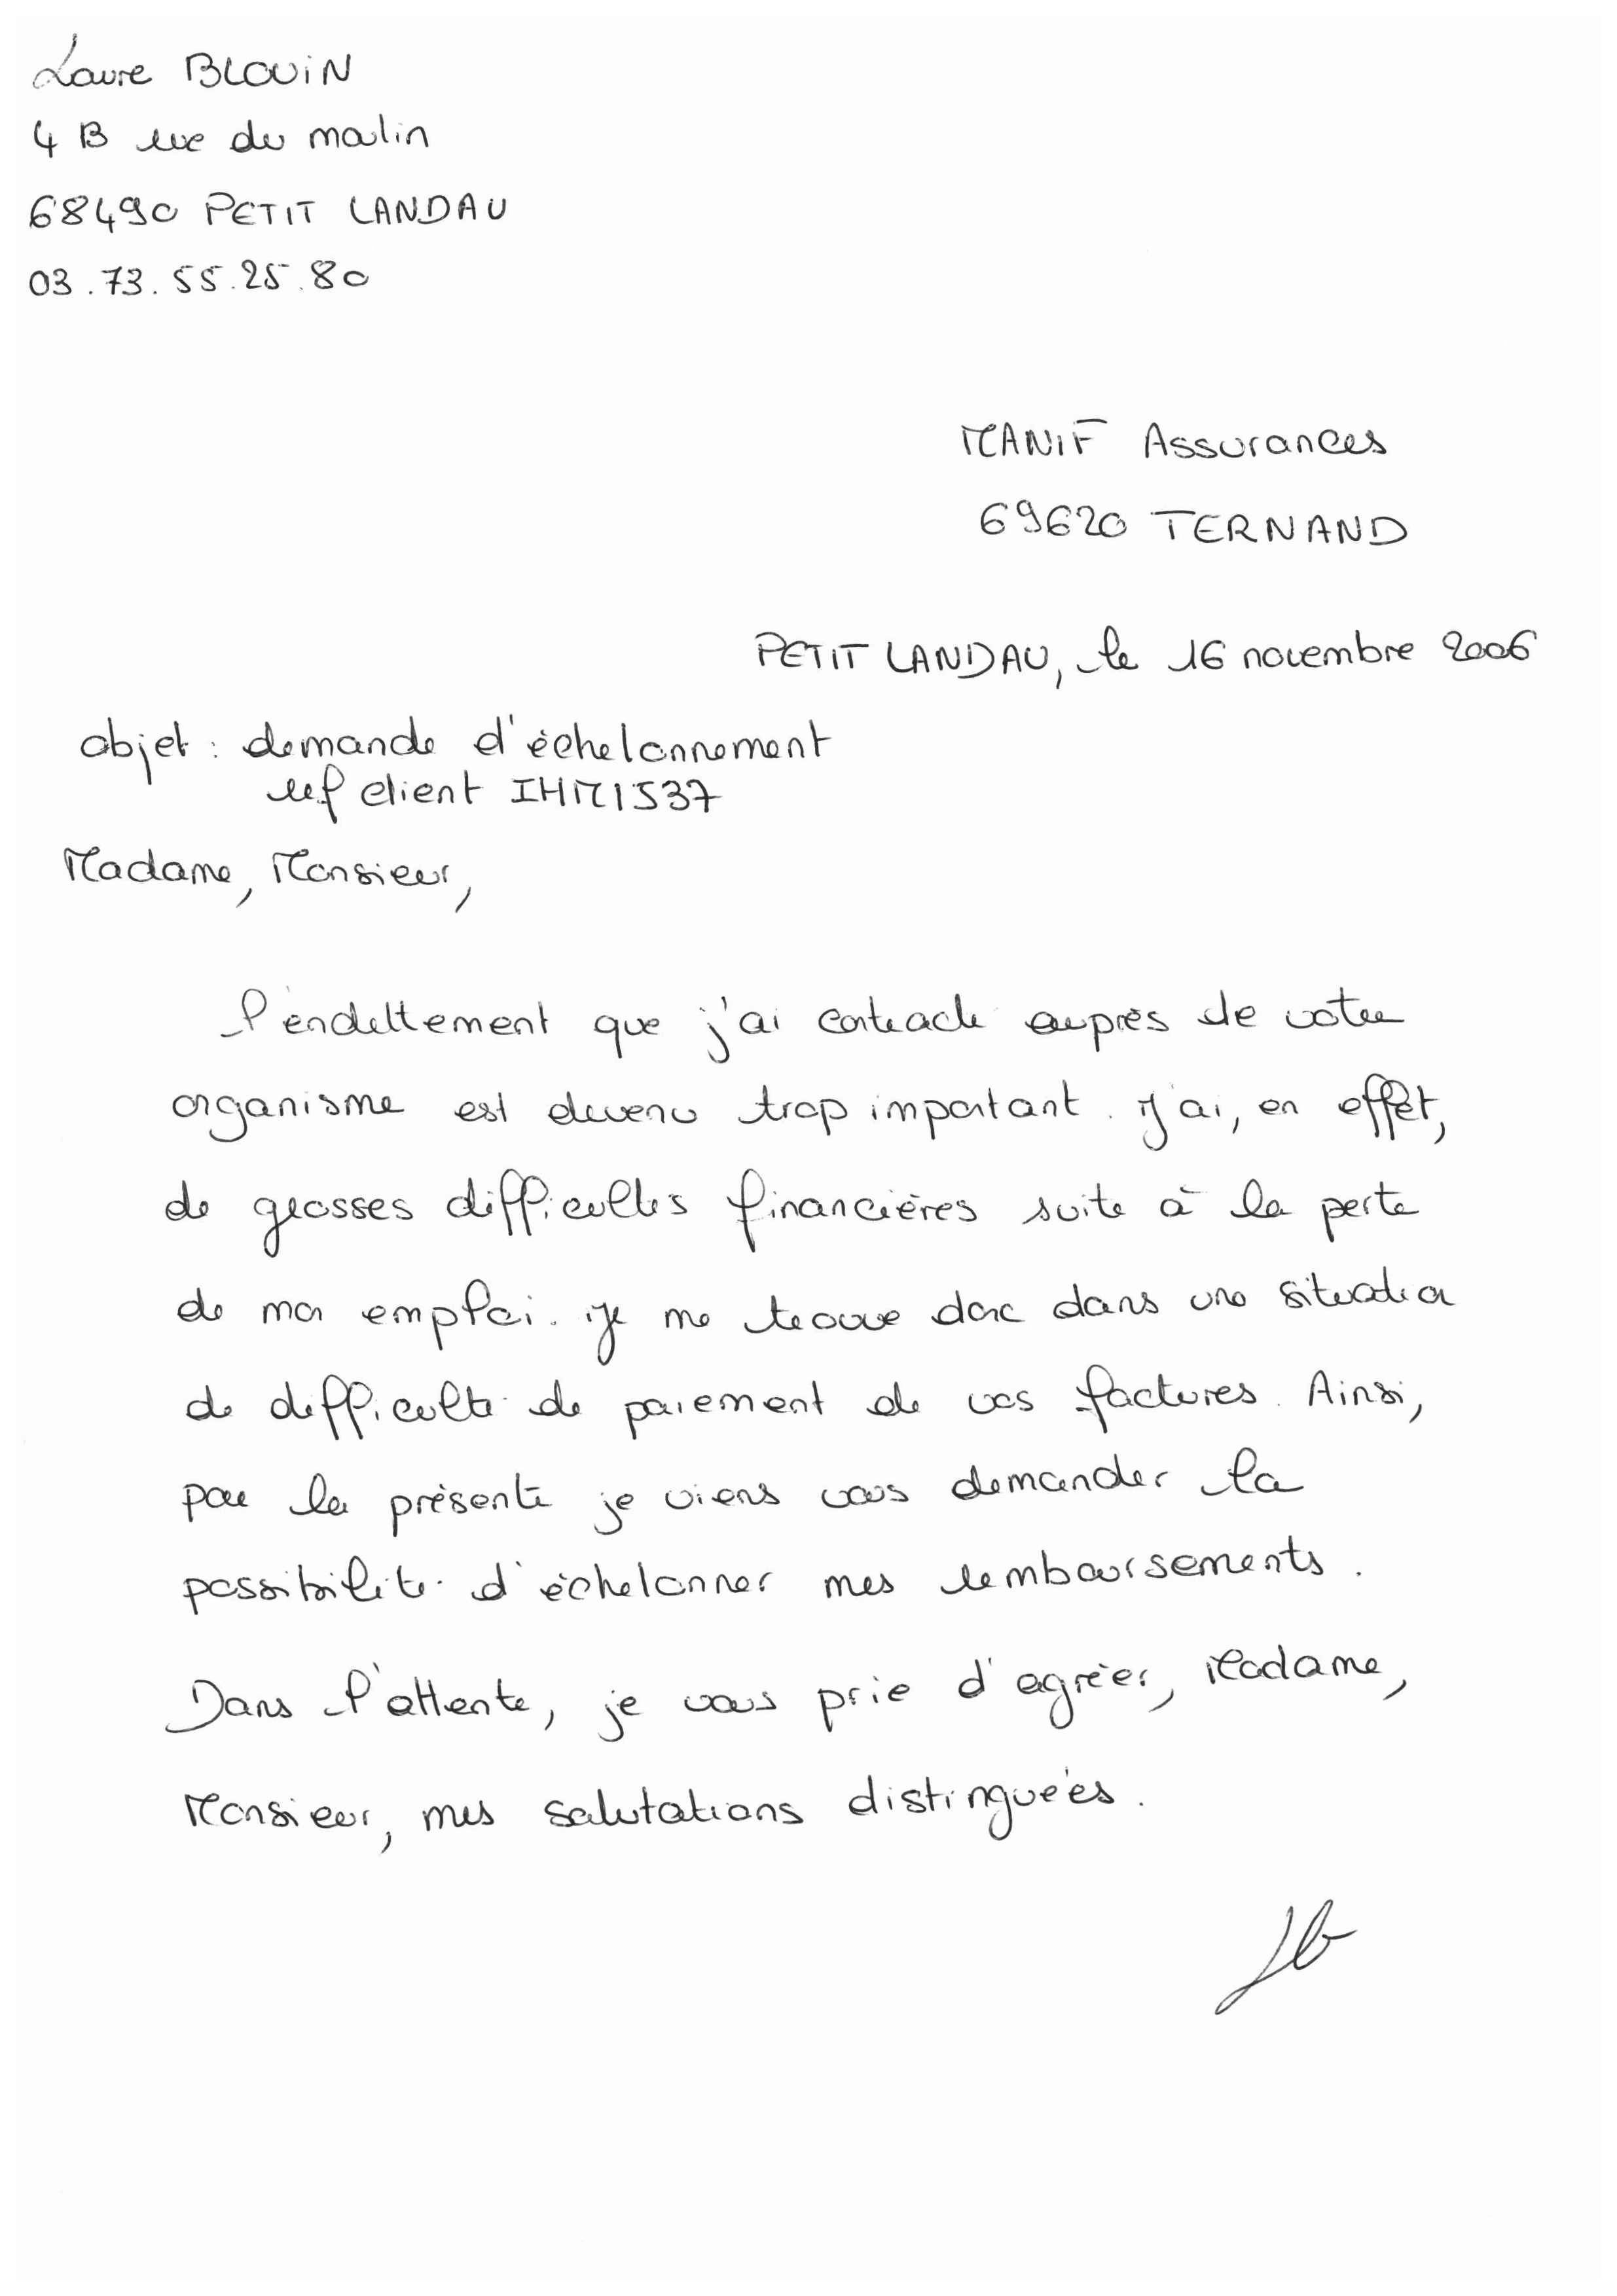 Laure BLOUiN
4 B rue du moulin
68490 PETIT LANDAU
03.73.55.25.80
MANiF Assurances
69620 TERNAND
PETIT LANDAU, le 16 novembre 2006
objet : demande d'échelonnement
ref client IHM1537
Madame, Monsieur,
l'endettement que j'ai contracté auprès de votre
organisme est devenu trop important. J'ai, en effet,
de grosses difficultés financières suite à la perte
de mon emploi. Je me trouve donc dans une situation
de difficulté de paiement de vos factures. Ainsi,
par la présente je viens vous demander la
possibilité d'échelonner mes remboursements.
Dans l'attente, je vous prie d'agréer, Madame,
Monsieur, mes salutations distinguées.